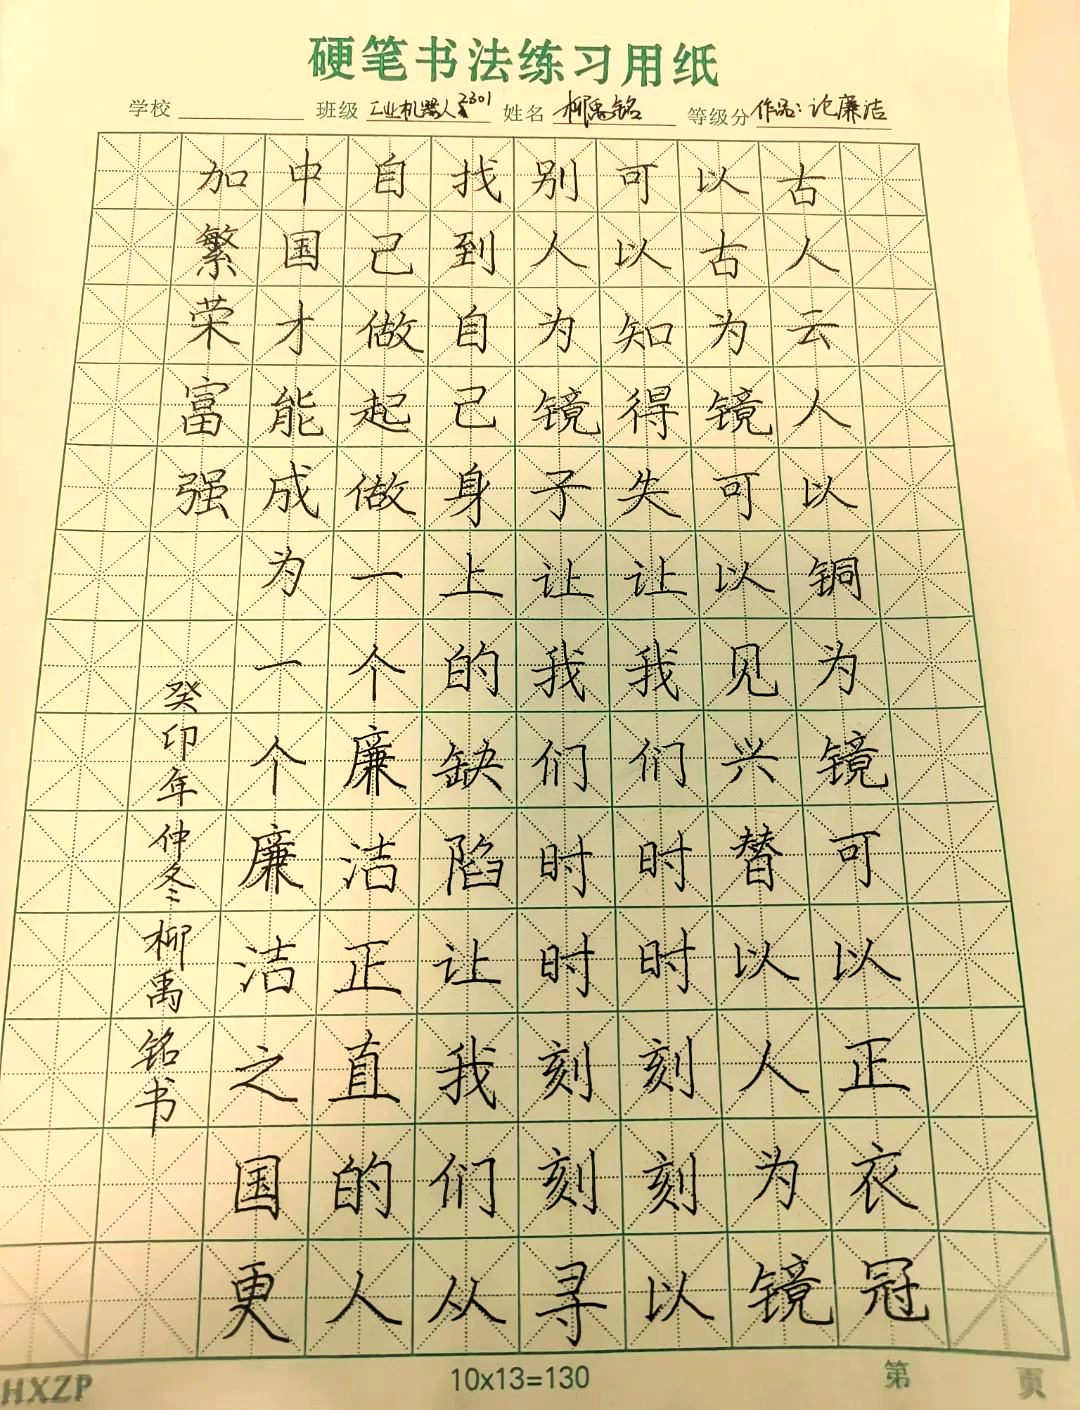 硬笔书法练习用纸
学校 班级 工业机器人2301 姓名 柳禹铭 等级分 作品:论廉洁
古人云人以铜为镜可以正衣冠
以古为镜可以见兴替以人为镜
可以知得失让我们时时刻刻以
别人为镜子让我们时时刻刻寻
找到自己身上的缺陷让我们从
自己做起做一个廉洁正直的人
中国才能成为一个廉洁之国更
加繁荣富强
癸印年仲冬柳禹铭书
HXZP 10x13=130 第 页